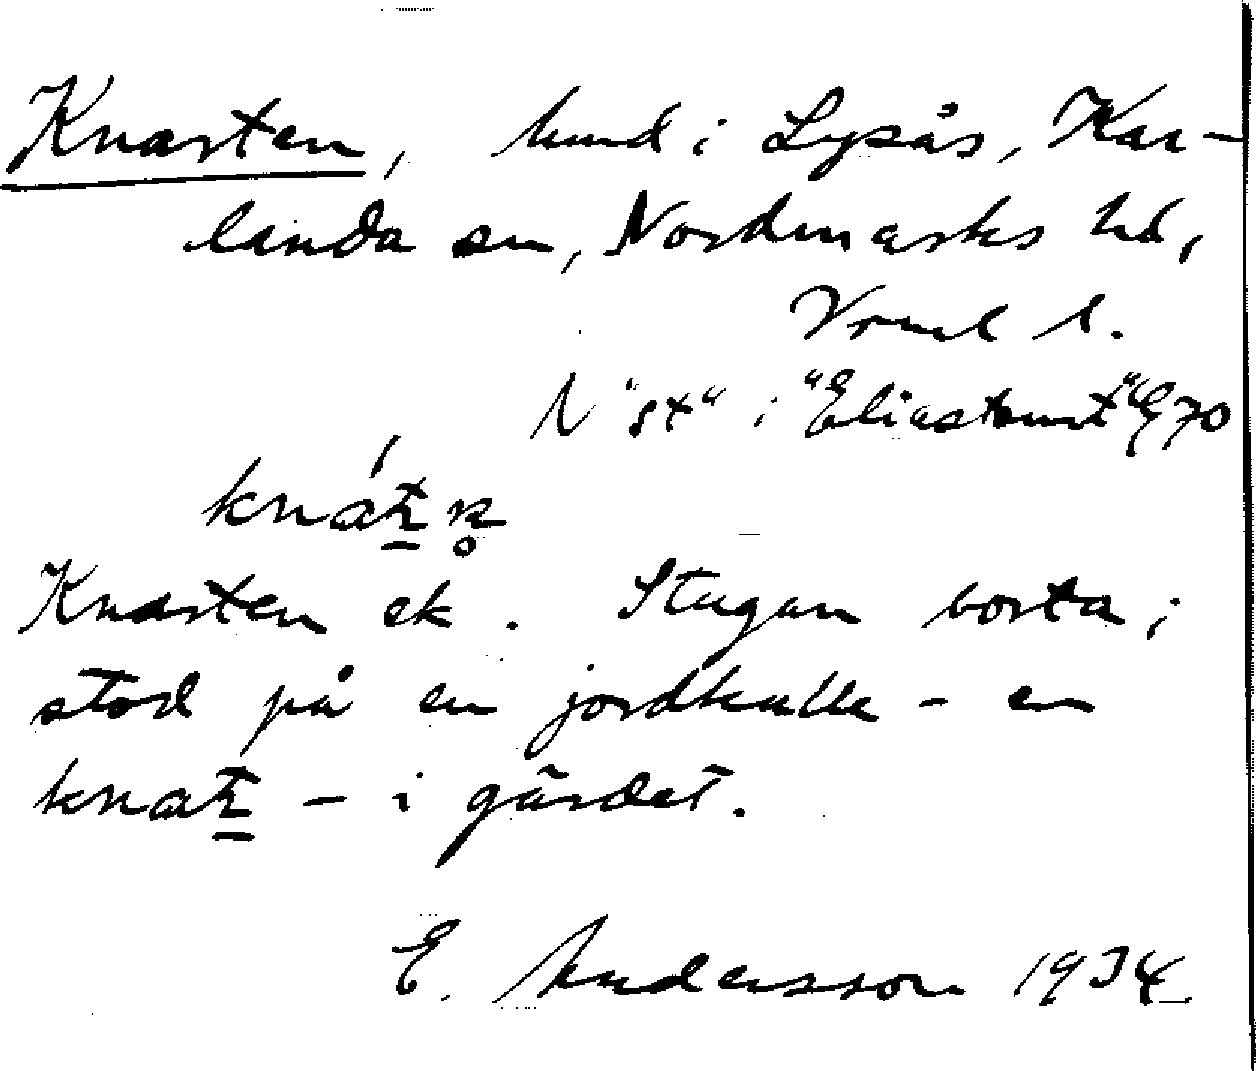 Knarten, hmd i Lysås, Kar-
landa sn, Nordmarks hd,
Vrml l.
N "st" i "Eliastomt" G70
knát̲ n̥
Knarten ek. Stugan borta;
stod på en jordkulle - en
knat̲ - i gärdet.
E. Andersson 1934